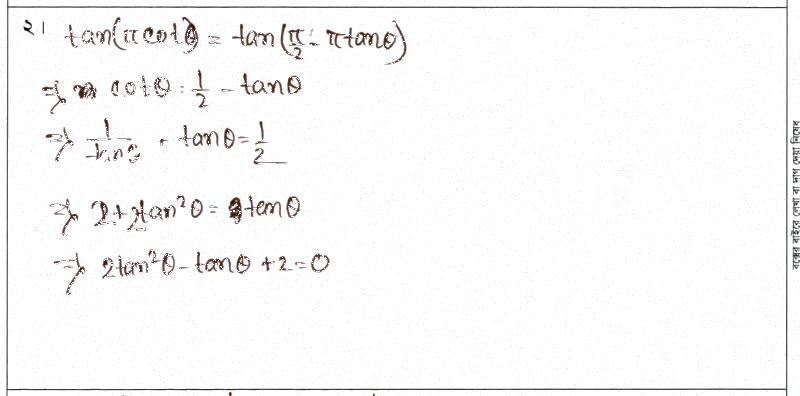 ২। tan(πcotθ) = tan(π/2 - πtanθ)
⇒ cotθ = 1/2 - tanθ
⇒ 1/tanθ + tanθ = 1/2
⇒ 2+2tan²θ = tanθ
⇒ 2tan²θ - tanθ + 2 = 0
বক্সের বাইরে লেখা বা দাগ দেয়া নিষেধ